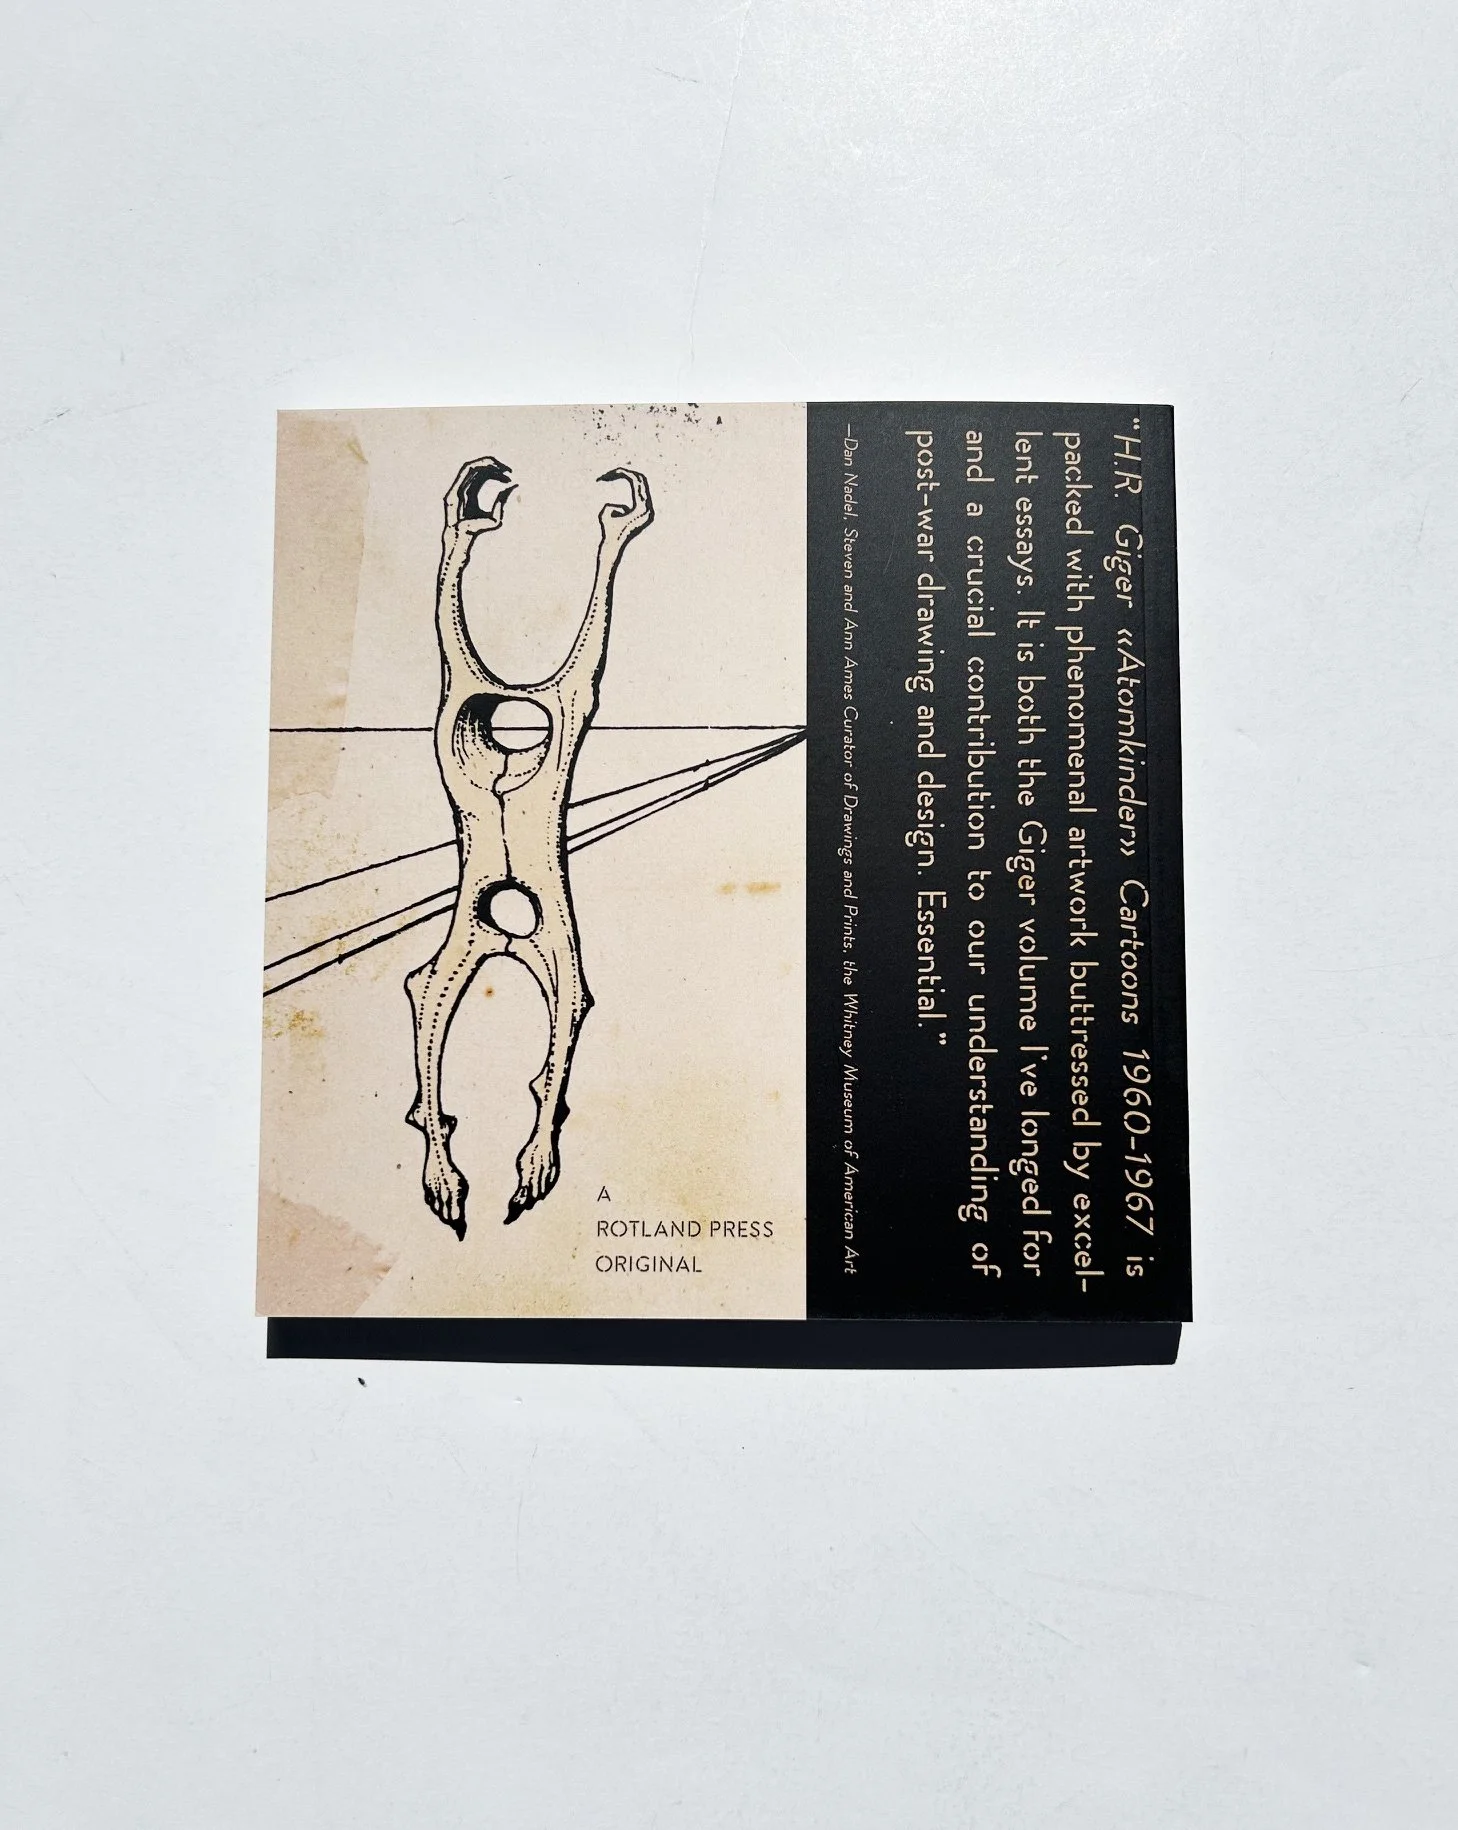 "H.R. Giger «Atomkinder» Cartoons 1960-1967 is
packed with phenomenal artwork buttressed by excel-
lent essays. It is both the Giger volume I've longed for
and a crucial contribution to our understanding of
post-war drawing and design. Essential."
—Dan Nadel, Steven and Ann Ames Curator of Drawings and Prints, the Whitney Museum of American Art
A
ROTLAND PRESS
ORIGINAL